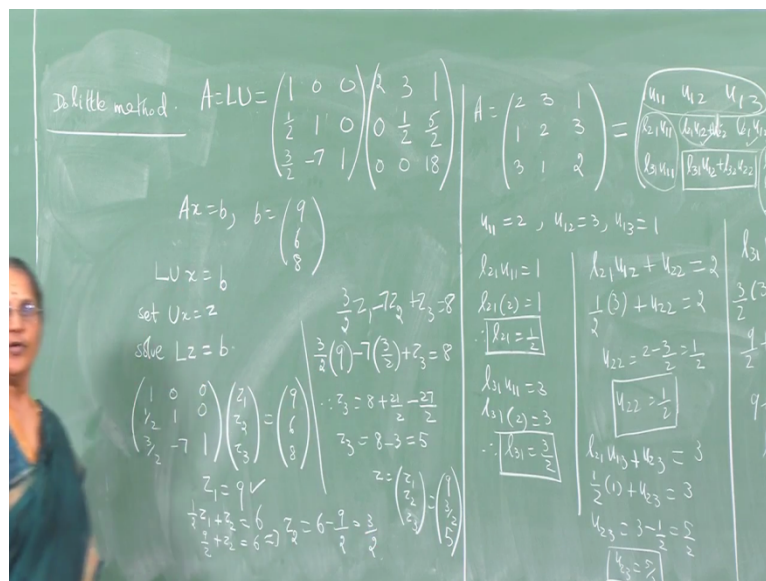 Dolittle method. A=LU= (1 0 0; 1/2 1 0; 3/2 -7 1) (2 3 1; 0 1/2 5/2; 0 0 18)
Ax=b, b= (9; 6; 8)
LUx=b
set Ux=z
solve Lz=b.
(1 0 0; 1/2 1 0; 3/2 -7 1) (z1; z2; z3) = (9; 6; 8)
z1=9 ✓
1/2 z1+z2=6
9/2+z2=6 => z2=6-9/2=3/2
3/2 z1-7z2+z3=8
3/2(9)-7(3/2)+z3=8
∴z3=8+21/2-27/2
z3=8-3=5
z= (z1; z2; z3) = (9; 3/2; 5)
A= (2 3 1; 1 2 3; 3 1 2) =
u11 u12 u13
l21u11
l31u11 l31u12+l32u22
u11=2, u12=3, u13=1
l21u11=1
l21(2)=1
∴ l21=1/2
l31u11=3
l31(2)=3
∴ l31=3/2
l21u12+u22=2
1/2(3)+u22=2
u22=2-3/2=1/2
u22=1/2
l21u13+u23=3
1/2(1)+u23=3
u23=3-1/2=5/2
l31
3/2(3
9/2+
9